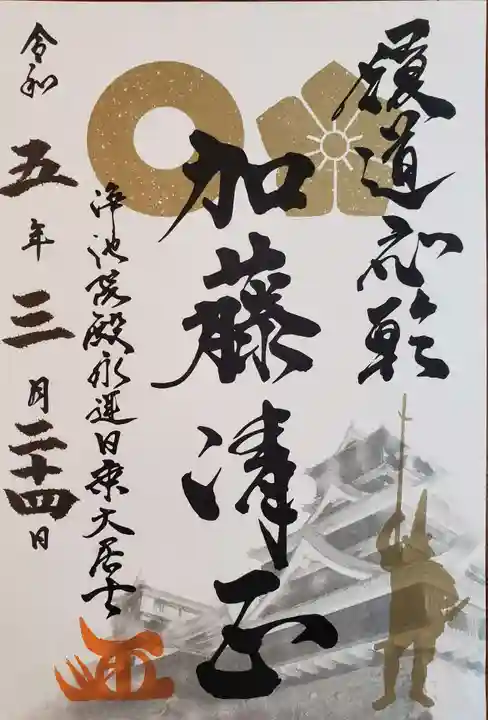 履道應乾
加藤清正
浄池院殿永運日乗大居士
令和五年三月二十四日